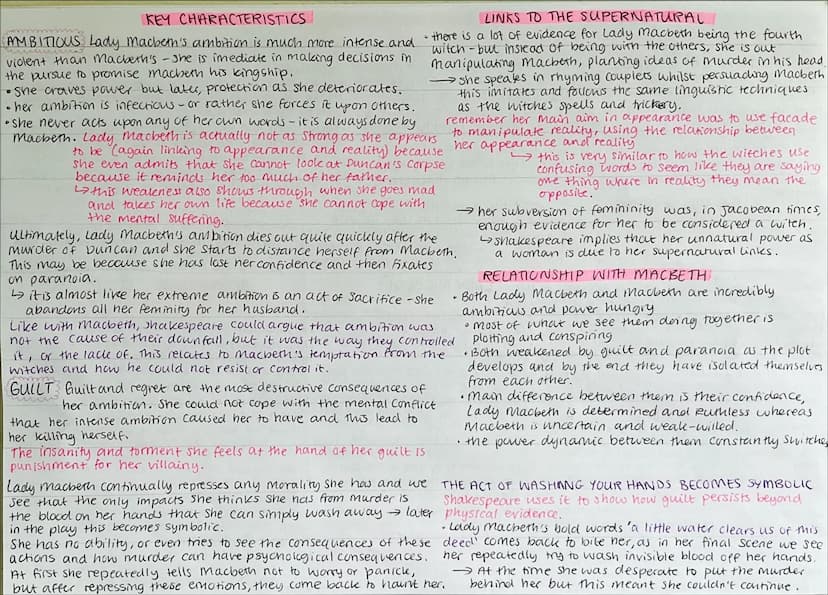 KEY CHARACTERISTICS
AMBITIOUS Lady Macbeth's ambition is much more intense and
violent than Macbeth's - she is imediate in making decisions in
the pursue to promise macbeth his kingship.
• she craves power but later, protection as she deteriorates.
• her ambition is infectious - or rather she forces it upon others.
• she never acts upon any of her own words - it is always done by
Macbeth. Lady Macbeth is actually not as strong as she appears
to be (again linking to appearance and reality) because
she even admits that she cannot look at Duncan's corpse
because it reminds her too much of her father.
↳ this weakness also shows through when she goes mad
and takes her own life because she cannot cope with
the mental suffering.
Ultimately, Lady Macbeth's ambition dies out quite quickly after the
murder of Duncan and she starts to distance herself from Macbeth.
This may be because she has lost her confidence and then fixates
on paranoia.
↳ it is almost like her extreme ambition is an act of sacrifice - she
abandons all her feminity for her husband.
Like with Macbeth, Shakespeare could argue that ambition was
not the cause of their downfall, but it was the way they controlled
it, or the lack of. This relates to Macbeth's temptation from the
witches and how he could not resist or control it.
GUILT Guilt and regret are the most destructive consequences of
her ambition. She could not cope with the mental conflict
that her intense ambition caused her to have and this lead to
her killing herself.
The insanity and torment she feels at the hand of her guilt is
punishment for her villainy.
Lady Macbeth continually represses any morality she has and we
see that the only impacts she thinks she has from murder is
the blood on her hands that she can simply wash away → later
in the play this becomes symbolic.
She has no ability, or even tries to see the consequences of these
actions and how murder can have psychological consequences.
At first she repeatedly tells Macbeth not to worry or panick,
but after repressing these emotions, they come back to haunt her.
LINKS TO THE SUPERNATURAL
• there is a lot of evidence for Lady Macbeth being the fourth
witch - but instead of being with the others, she is out
manipulating Macbeth, planting ideas of murder in his head.
→ she speaks in rhyming couplets whilst persuading Macbeth
this imitates and follows the same linguistic techniques
as the witches spells and trickery.
remember her main aim in appearance was to use facade
to manipulate reality, using the relationship between
her appearance and reality
↳ this is very similar to how the witches use
confusing words to seem like they are saying
one thing where in reality they mean the
opposite.
→ her subversion of femininity was, in Jacobean times,
enough evidence for her to be considered a witch.
↳ Shakespeare implies that her unnatural power as
a woman is due to her supernatural links.
RELATIONSHIP WITH MACBETH
• Both Lady Macbeth and Macbeth are incredibly
ambitious and power hungry
• most of what we see them doing together is
plotting and conspiring
• Both weakened by guilt and paranoia as the plot
develops and by the end they have isolated themselves
from each other.
• Main difference between them is their confidence,
Lady Macbeth is determined and ruthless whereas
Macbeth is uncertain and weak-willed.
• the power dynamic between them constantly switches
THE ACT OF WASHING YOUR HANDS BECOMES SYMBOLIC
Shakespeare uses it to show how guilt persists beyond
physical evidence.
• Lady Macbeth's bold words 'a little water clears us of this
deed' comes back to bite her, as in her final scene we see
her repeatedly try to wash invisible blood off her hands.
→ At the time she was desperate to put the murder
behind her but this meant she couldn't continue.